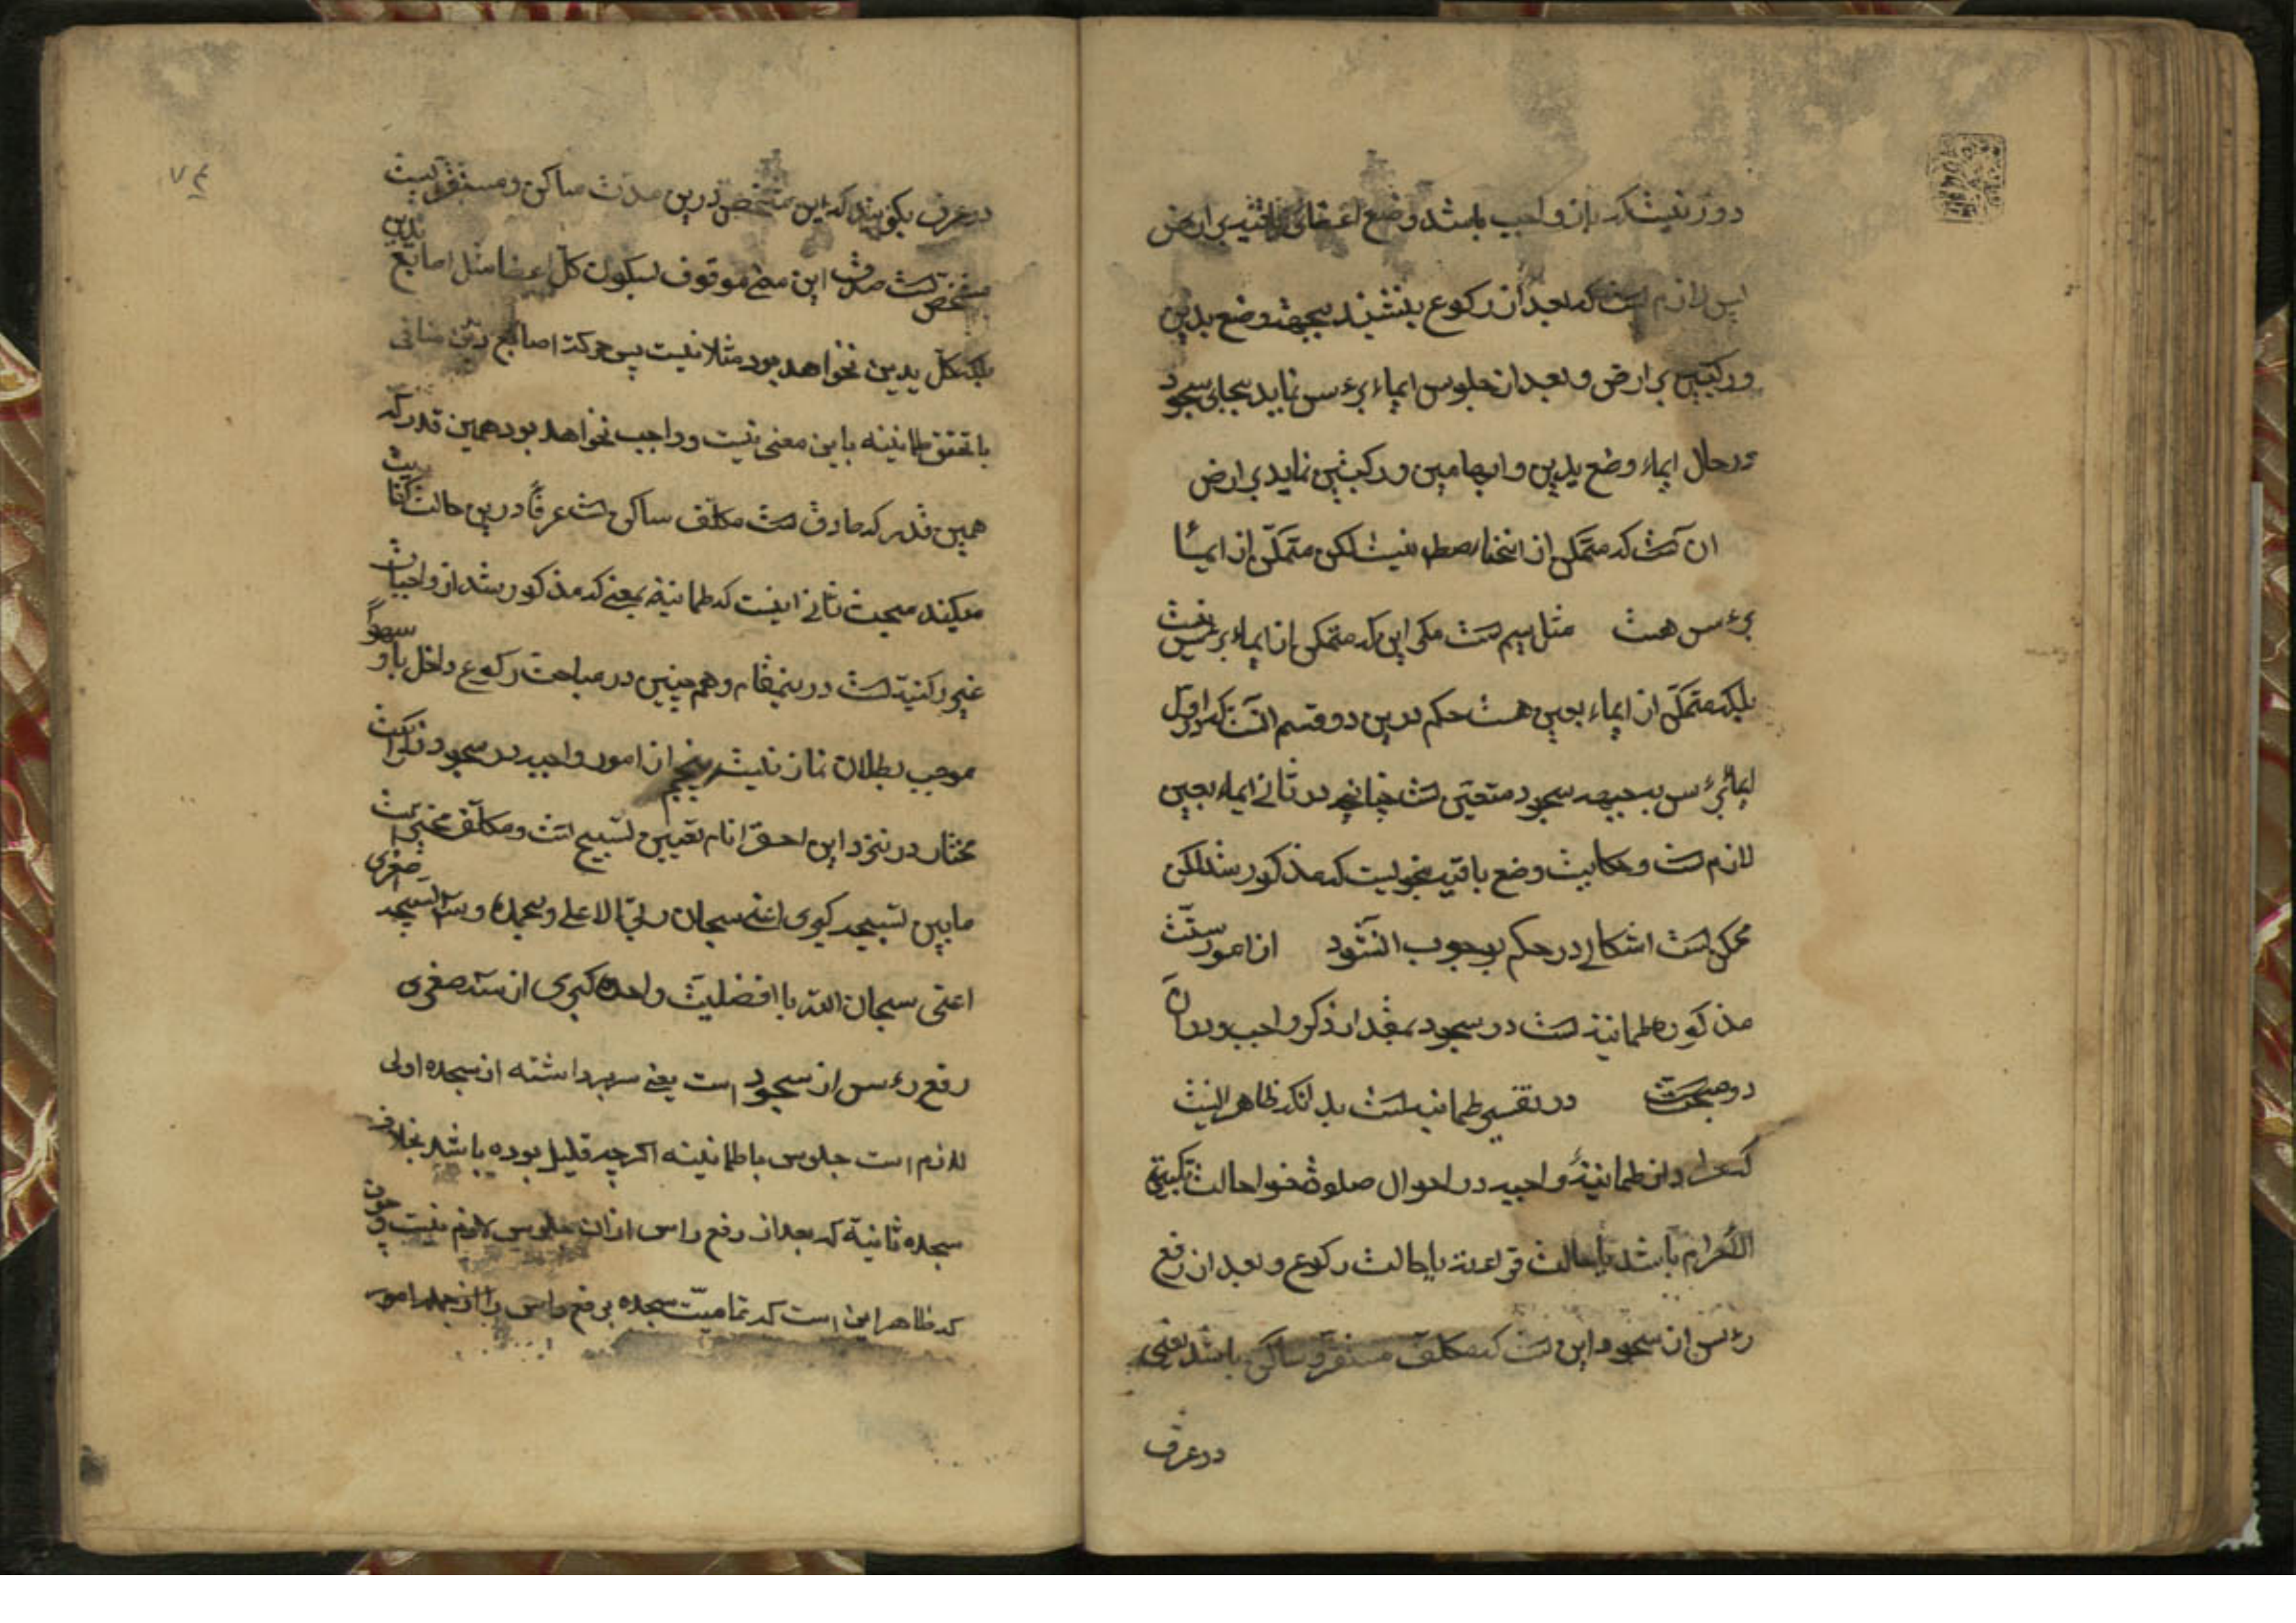 دور نیست که بان واجب باشد وضع اعضای باقیه بر ارض
پس لازم است که بعد از رکوع بنشیند بجهة وضع یدین
ورکبتین بر ارض و بعد از جلوس ایماء برءس نماید بجای سجود
ودرحال ایماء وضع یدین وابهامین ورکبتین نماید بر ارض
ان است که متمکن از انحنا مطلقا نیست لکن متمکن از ایمآء
برءس هست مثل سیم است مکر این که متمکن از ایماء برءس نیست
بلکه متمکن از ایماء بعین هست حکم درین دو قسم انست که در اول
ایماء برءس بجهة سجود متعین است چنانچه در ثانی ایماء بعین
لازم است وحکایت وضع باقیه بنحویست که مذکور شد لکن
ممکن است اشکالی در حکم بوجوب ان شود از امور ستّة
مذکوره طمانینه است در سجود بمقدار ذکر واجب ودران
دو مبحث است در تفسیر طمانینه است بدانکه ظاهر اینست
که مراد از طمانینهٔ واجبه در احوال صلوة خواه حالت تکبیرة
الاحرام باشد یا حالت قرائت یا حالت رکوع و بعد از رفع
رءس از سجود این است که مکلف مستقر وساکن باشد یعنی
در عرف
۷۴
در عرف بکویند که این شخص درین مدت ساکن ومستقر است
مشخص است صدق این معنی موقوف بسکون کل اعضا مثل اصابع یدین
بلکه کل یدین نخواهد بود مثلا نیست پس حرکة اصابع یدین منافی
با تحقق طمانینه باین معنی نیست وواجب نخواهد بود همین قدر که
همین قدر که صادق است مکلف ساکن است عرفاً درین حالت کفایت
میکند مبحث ثانی اینست که طمانینه بمعنی که مذکور شد از واجبات
غیر رکنیة است درینمقام وهم چنین در مباحث رکوع واخلال باو سهواً
موجب بطلان نماز نیست پنجم از امور واجبه در سجود ذکر است
مختار در نزد این احقر انام تعیین تسبیح است ومکلف مخیر است
مابین تسبیحه کبری اعنی سبحان ربی الاعلی وبحمده وسه تسبیحه صغری
اعنی سبحان الله با افضلیت واحده کبری از سه صغری
رفع رءس از سجود است یعنی سر برداشته از سجده اولی
لازم است جلوس باطمانینه اکرچه قلیل بوده باشد بخلاف
سجده ثانیة که بعد از رفع راس از ان جلوس لازم نیست وچون
که ظاهر این است که تمامیّت سجده برفع راس باشد از جمله امور